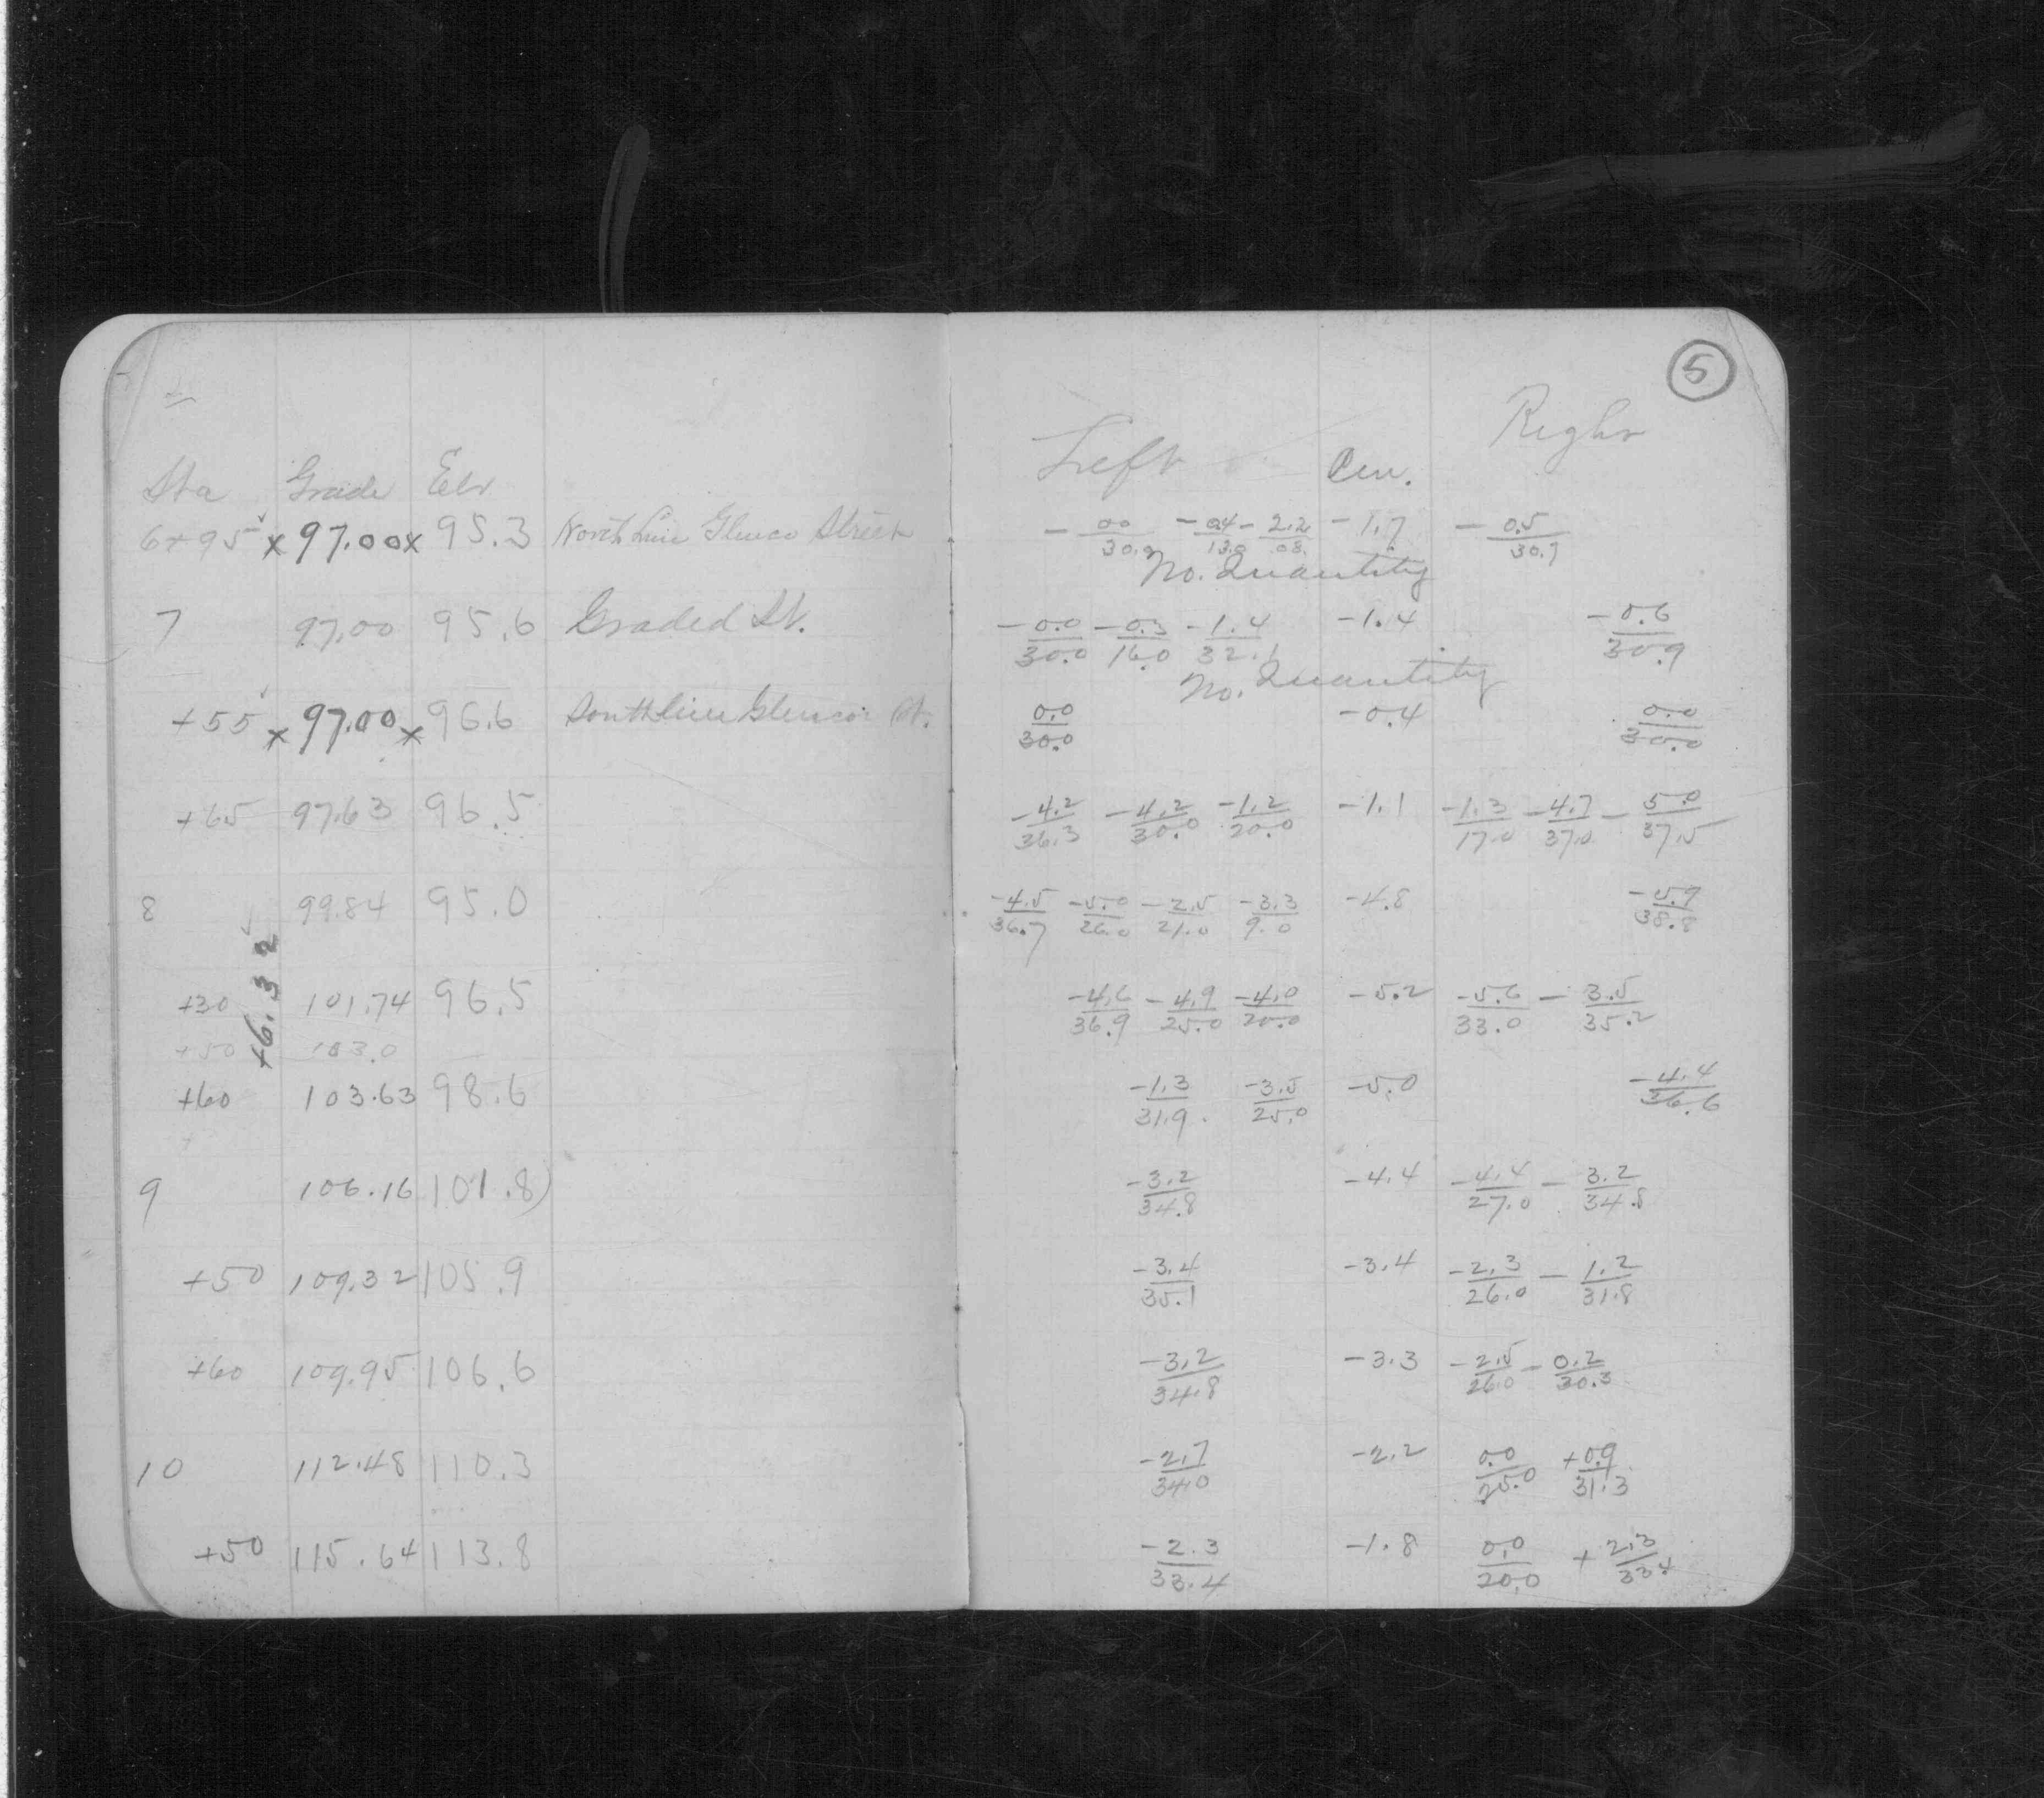 5
Left Cen. Right
Sta Grade Elv
6+95 x 97.00 x 95.3 North Line Glenco Street - 0.0/30.0 - 0.4/13.0 - 2.2/08. -1.7 - 0.5/30.7
No. Quantity
7 97.00 95.6 Graded St. -0.0/30.0 -0.3/16.0 -1.4/32.1 -1.4 -0.6/30.9
No. Quantity
+55 x 97.00 x 96.6 South line Glencoe St. 0.0/30.0 -0.4 0.0/30.0
+65 97.63 96.5 -4.2/36.3 -4.2/30.0 -1.2/20.0 -1.1 -1.3/17.0 -4.7/37.0 - 5.0/37.5
8 99.84 95.0 -4.5/36.7 -5.0/26.0 -2.5/21.0 -3.3/9.0 -4.8 -5.9/38.8
+6.32
+30 101.74 96.5 -4.6/36.9 -4.9/25.0 -4.0/20.0 -5.2 -5.6/33.0 - 3.5/35.2
+50 103.0
+60 103.63 98.6 -1.3/31.9 -3.5/25.0 -5.0 -4.4/36.6
9 106.16 101.8) -3.2/34.8 -4.4 -4.4/27.0 - 3.2/34.8
+50 109.32 105.9 -3.4/35.1 -3.4 -2.3/26.0 - 1.2/31.8
+60 109.95 106.6 -3.2/34.8 -3.3 -2.5/26.0 - 0.2/30.3
10 112.48 110.3 -2.7/34.0 -2.2 0.0/25.0 +0.9/31.3
+50 115.64 113.8 -2.3/33.4 -1.8 0.0/20.0 + 2.3/33.4